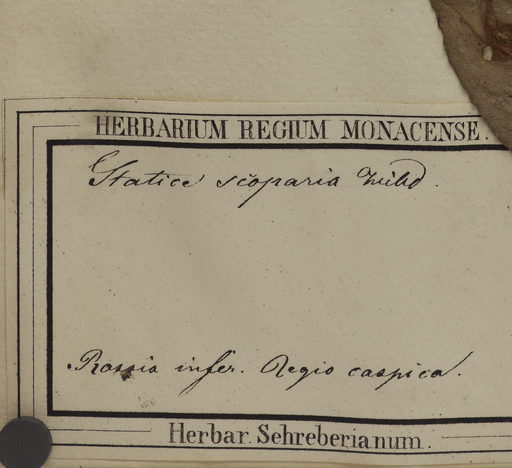 HERBARIUM REGIUM MONACENSE.
Statice scoparia Willd.
Rossia infer. Regio caspica.
Herbar. Schreberianum.